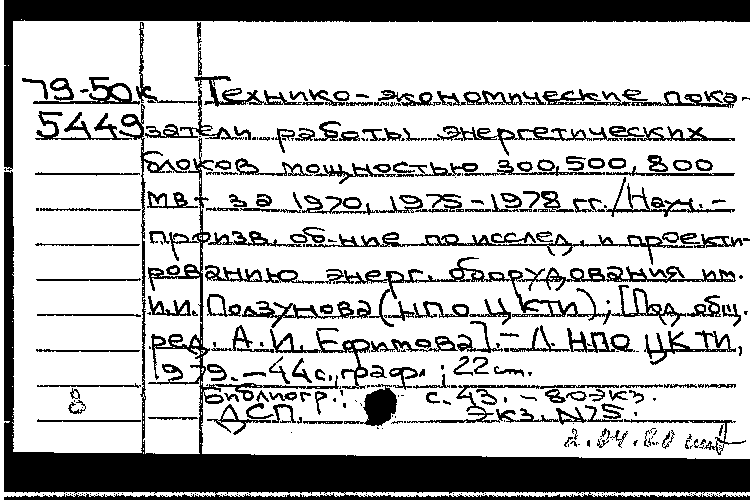 79-50к Технико-экономические пока-
5449 затели работы энергетических
блоков мощностью 300, 500, 800
мвт за 1970, 1975-1978 гг. /Науч.-
произв. об-ние по исслед. и проекти-
рованию энерг. оборудования им.
И.И. Ползунова (НПО ЦКТИ); [Под общ.
ред. А.И. Ефимова]. - Л. НПО ЦКТИ,
1979. - 44 с., граф.; 22 см.
8 Библиогр.: с. 43. - 80 экз.
ДСП. Экз. N75.
2.04.80